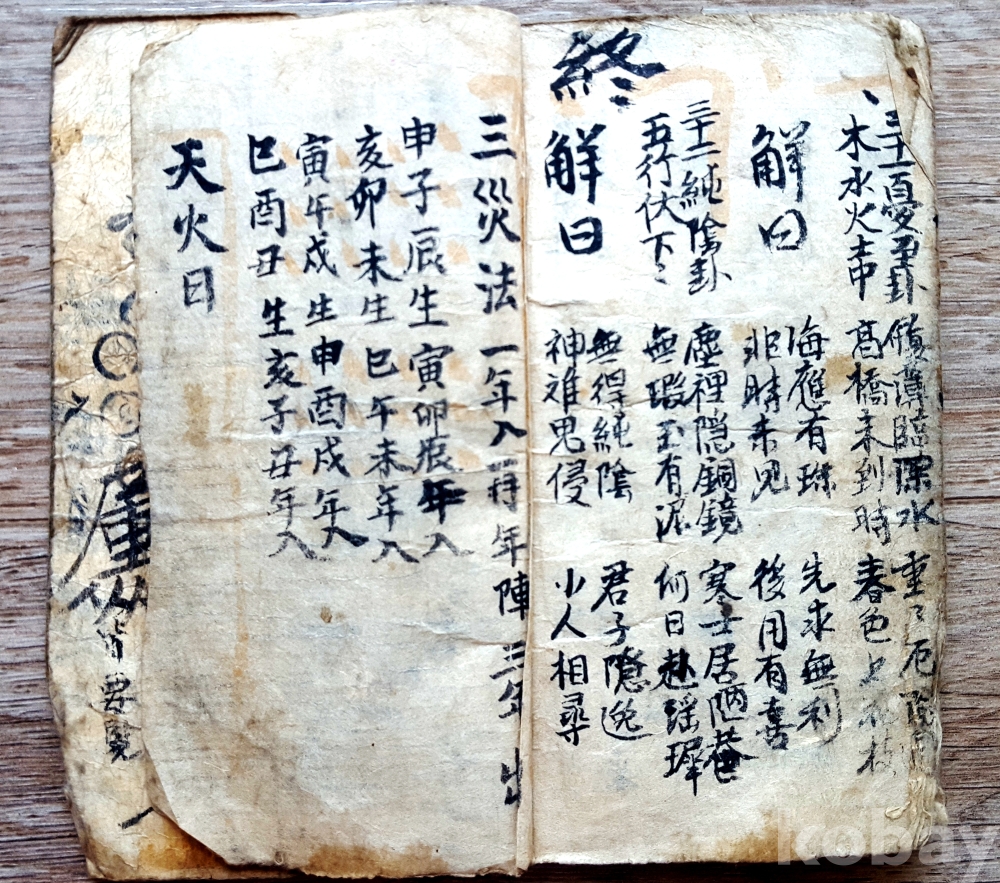 三十一憂卦 臨深水 重〻厄
木水火 高橋未到時 春色
解曰 海應有珠 先求無利
非時未見 後用有喜
三十二純陰卦 塵裡隐銅鏡 寒士居陋巷
五行伏下〻 無瑕玉有泥 何日赴瑶墀
解曰 無得純陰 君子隱逸
神难鬼侵 小人相尋
終
三災法 一年入 年陣 三年出
申子辰生寅卯辰年入
亥卯未生巳午未年入
寅午戌生申酉戌年入
巳酉丑生亥子丑年入
天火日
要覧
kobay